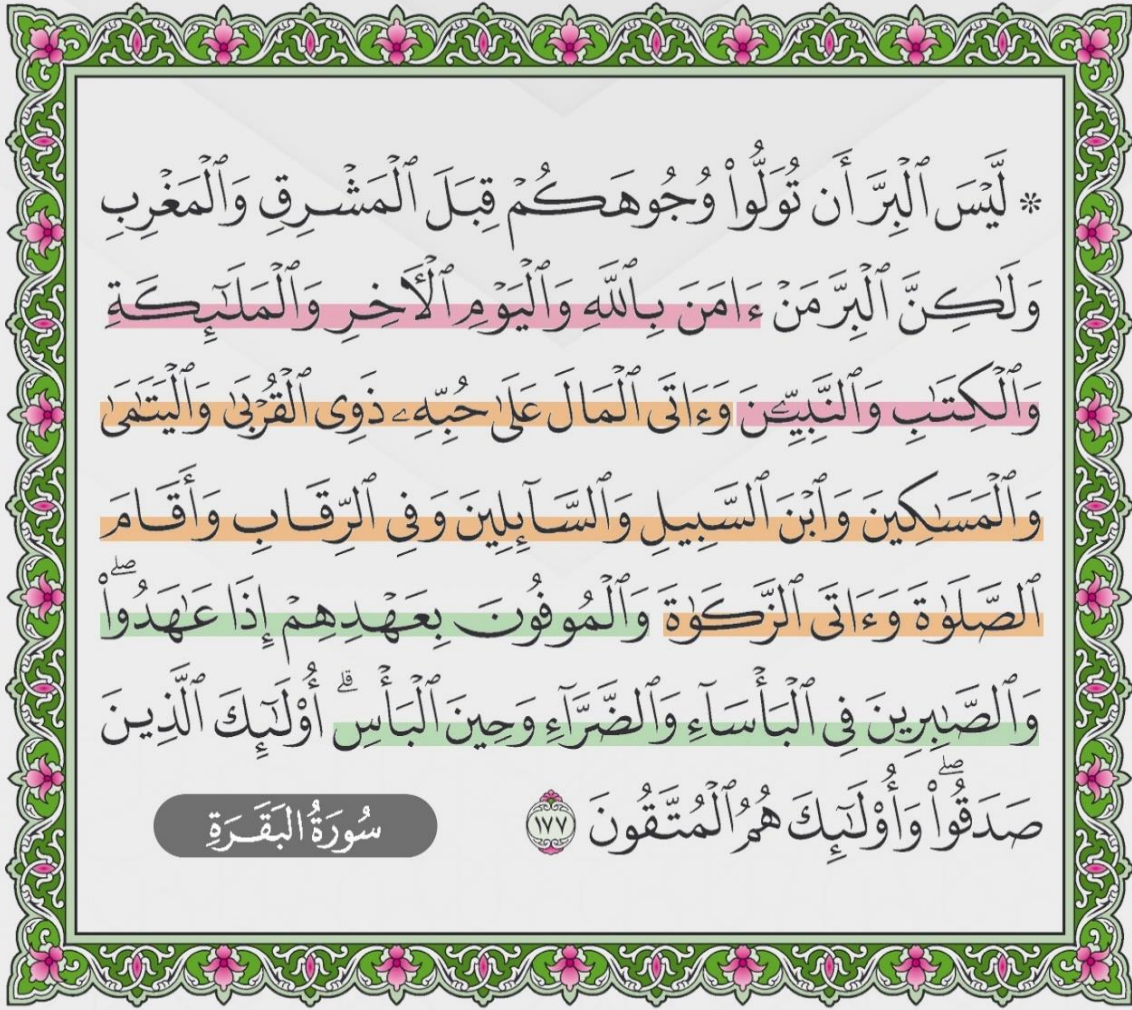 * لَّيْسَ ٱلْبِرَّ أَن تُوَلُّوا۟ وُجُوهَكُمْ قِبَلَ ٱلْمَشْرِقِ وَٱلْمَغْرِبِ
وَلَٰكِنَّ ٱلْبِرَّ مَنْ ءَامَنَ بِٱللَّهِ وَٱلْيَوْمِ ٱلْءَاخِرِ وَٱلْمَلَٰٓئِكَةِ
وَٱلْكِتَٰبِ وَٱلنَّبِيِّـۧنَ وَءَاتَى ٱلْمَالَ عَلَىٰ حُبِّهِۦ ذَوِى ٱلْقُرْبَىٰ وَٱلْيَتَٰمَىٰ
وَٱلْمَسَٰكِينَ وَٱبْنَ ٱلسَّبِيلِ وَٱلسَّآئِلِينَ وَفِى ٱلرِّقَابِ وَأَقَامَ
ٱلصَّلَوٰةَ وَءَاتَى ٱلزَّكَوٰةَ وَٱلْمُوفُونَ بِعَهْدِهِمْ إِذَا عَٰهَدُوا۟ۖ
وَٱلصَّٰبِرِينَ فِى ٱلْبَأْسَآءِ وَٱلضَّرَّآءِ وَحِينَ ٱلْبَأْسِۗ أُو۟لَٰٓئِكَ ٱلَّذِينَ
صَدَقُوا۟ۖ وَأُو۟لَٰٓئِكَ هُمُ ٱلْمُتَّقُونَ ١٧٧
سُورَةُ البَقَرَةِ